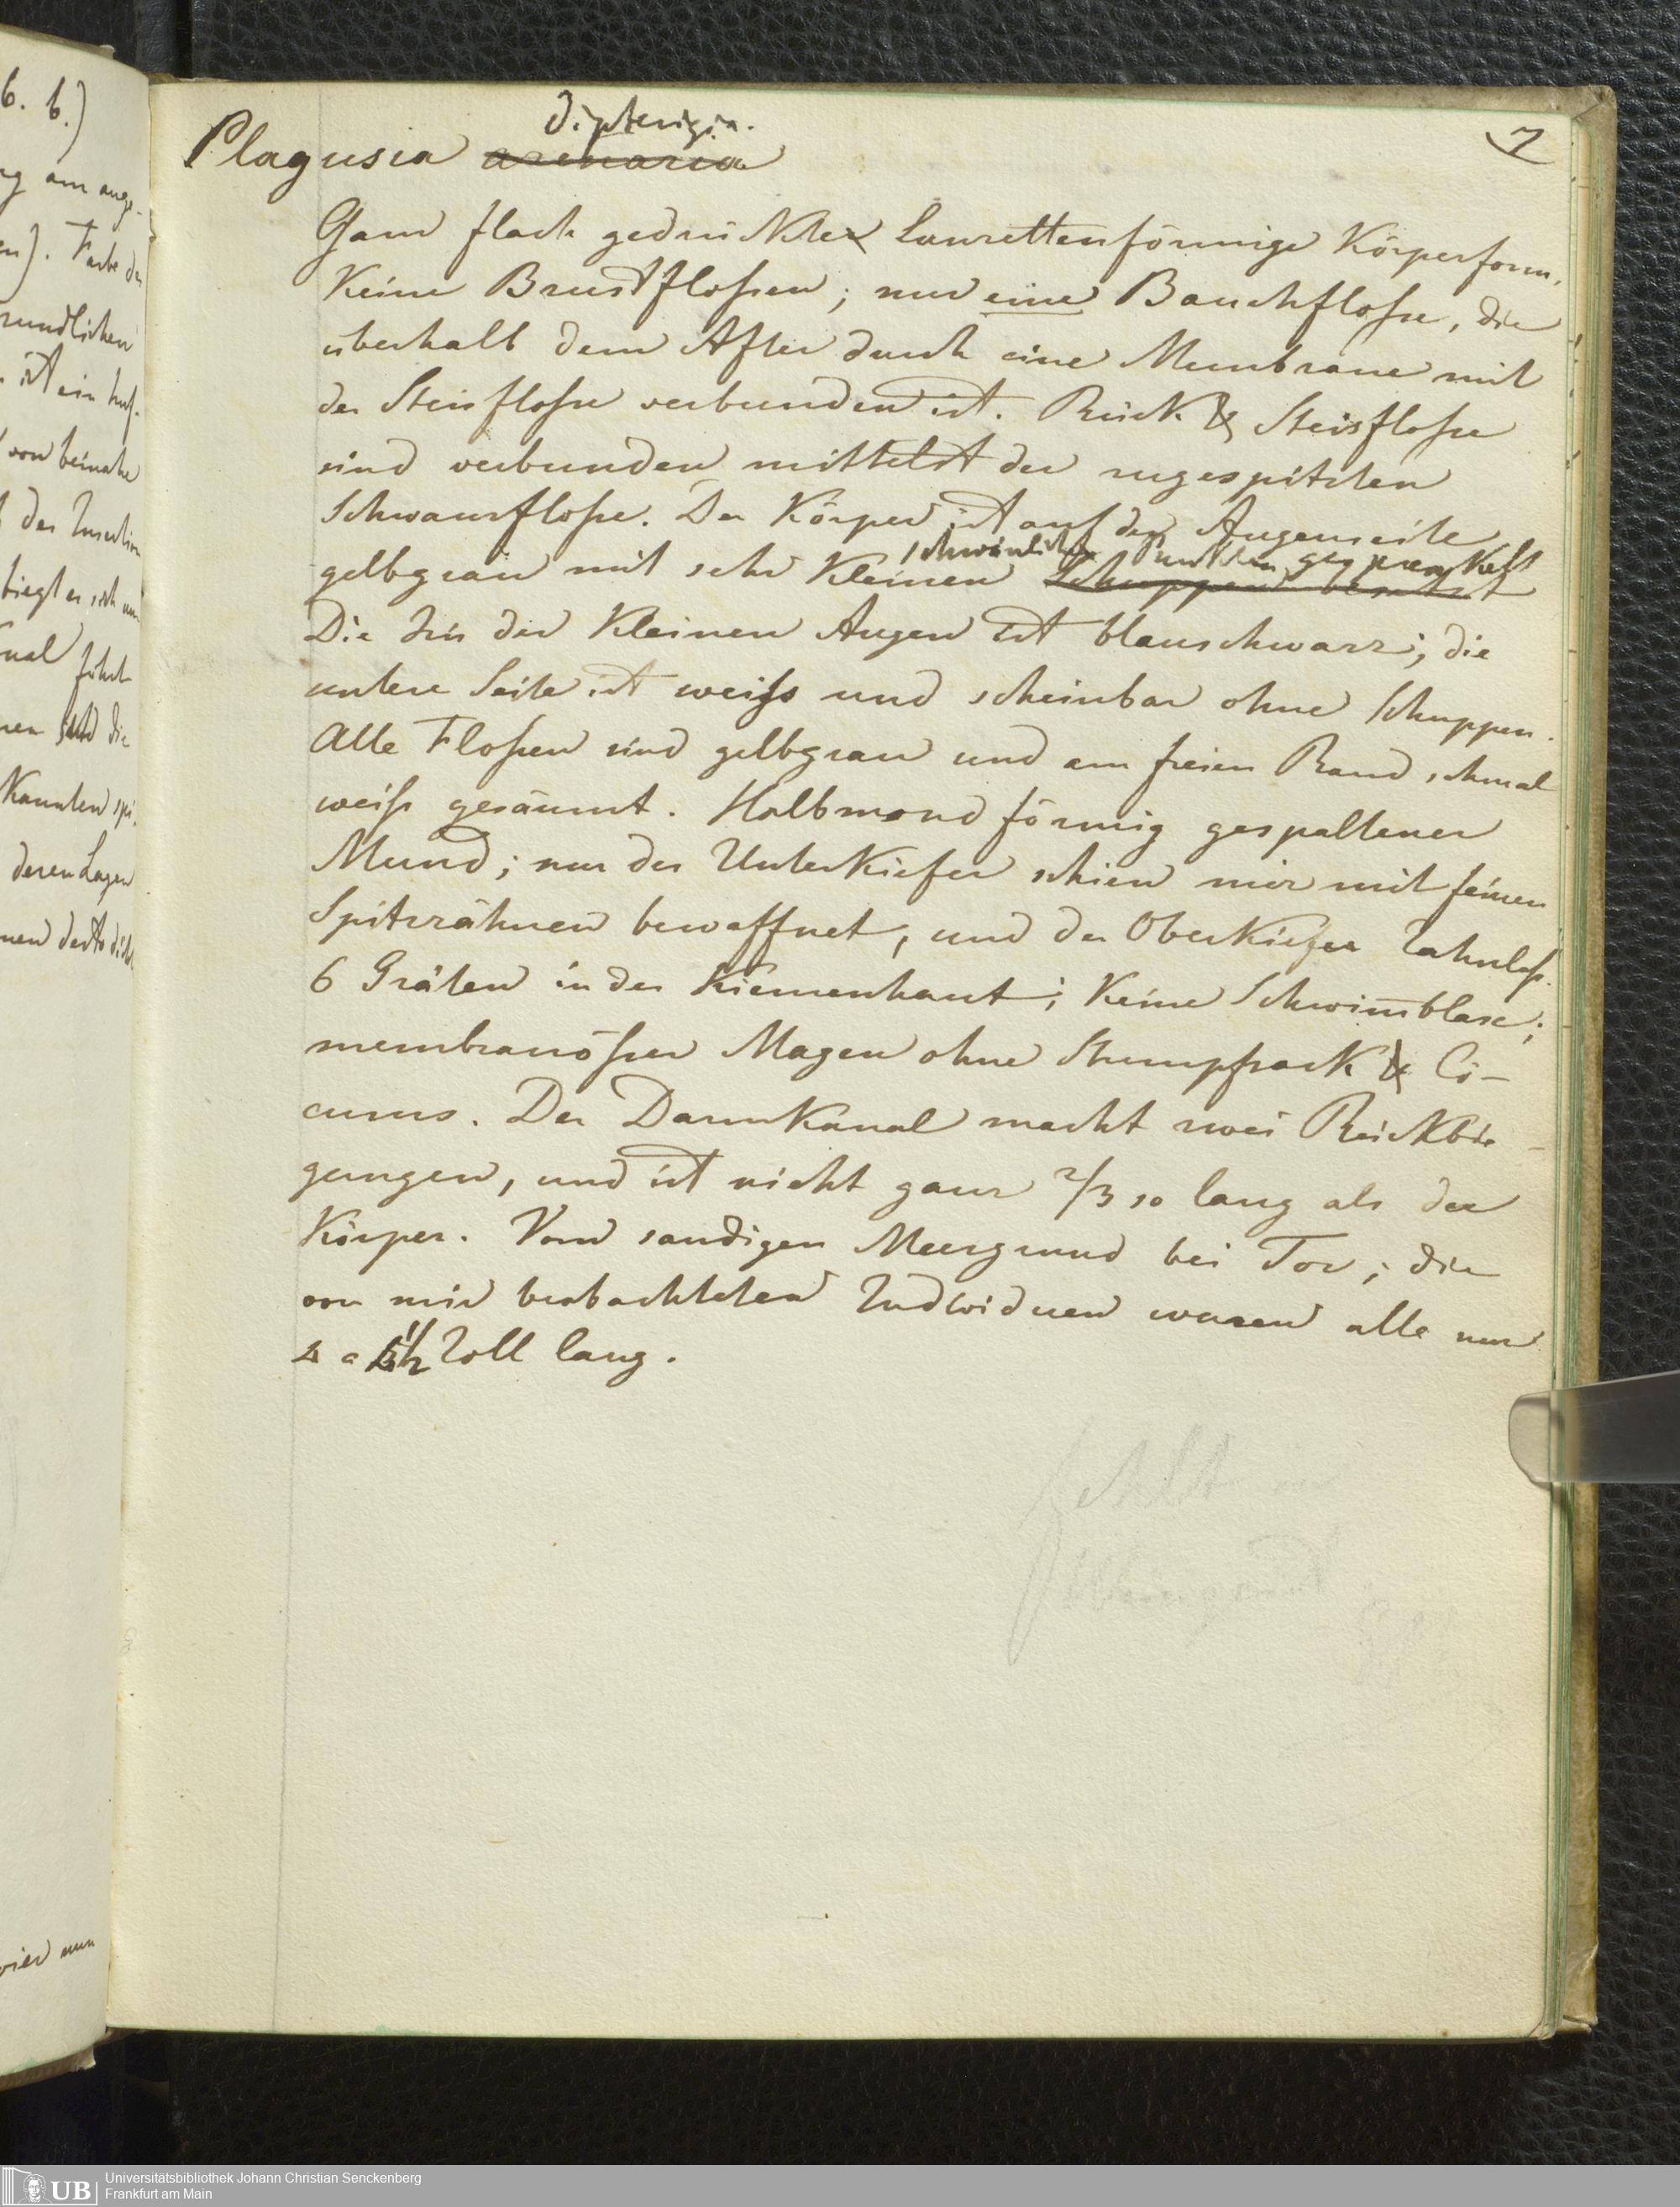 b. b.)
7
dipterigia.
Plagusia arenaria
Ganz flach gedrückte Lanzettenförmige Körperform,
Keine Brustfloßen; nur eine Bauchfloße, die
überhalb dem After durch eine Membrane mit
der Steisfloße verbunden ist. Rück & Steisfloße
sind verbunden mittelst der zugespitzten
Schwanzfloße. Der Körper ist auf der Augenseite
schwärzlichen Punkten gesprenkelt
gelbgrau mit sehr Kleinen Schuppen besetzt
Die Iris der Kleinen Augen ist blauschwarz; die
untere Seite ist weiß und scheinbar ohne Schuppen.
Alle Floßen sind gelbgrau und am freien Rand schmal
weiß gesäumt. Halbmondförmig gespaltener
Mund; nur der Unterkiefer schien mir mit feinen
Spitzzähnen bewaffnet, und der Oberkiefer Zahnloß.
6 Gräten in der Kiemenhaut; Keine Schwim̄blase;
membranößer Magen ohne Stumpfsack & Cö-
cums. Der DarmKanal macht zwei Rückbie-
gungen, und ist nicht ganz 2/3 so lang als der
Körper. Vom sandigen Meergrund bei Tor; die
von mir beobachteten Individuen waren alle nur
Zoll lang.
fehlt in
Universitätsbibliothek Johann Christian Senckenberg
Frankfurt am Main
UB